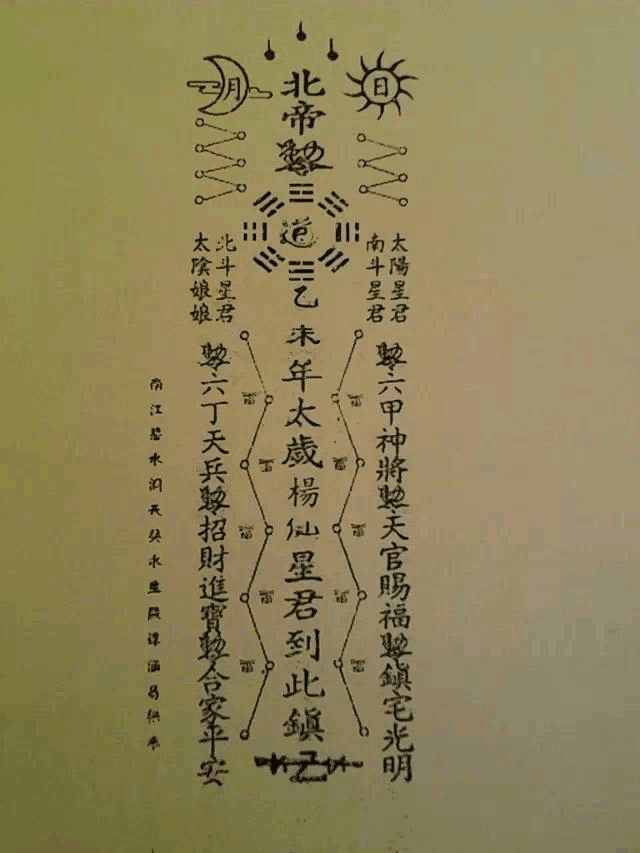 日
月
北帝勅
道
乙未年太歲楊仙星君到此鎮
太陽星君
南斗星君
北斗星君
太陰娘娘
勅六甲神將勅天官賜福勅鎮宅光明
勅六丁天兵勅招財進寶勅合家平安
南江水洞天水生